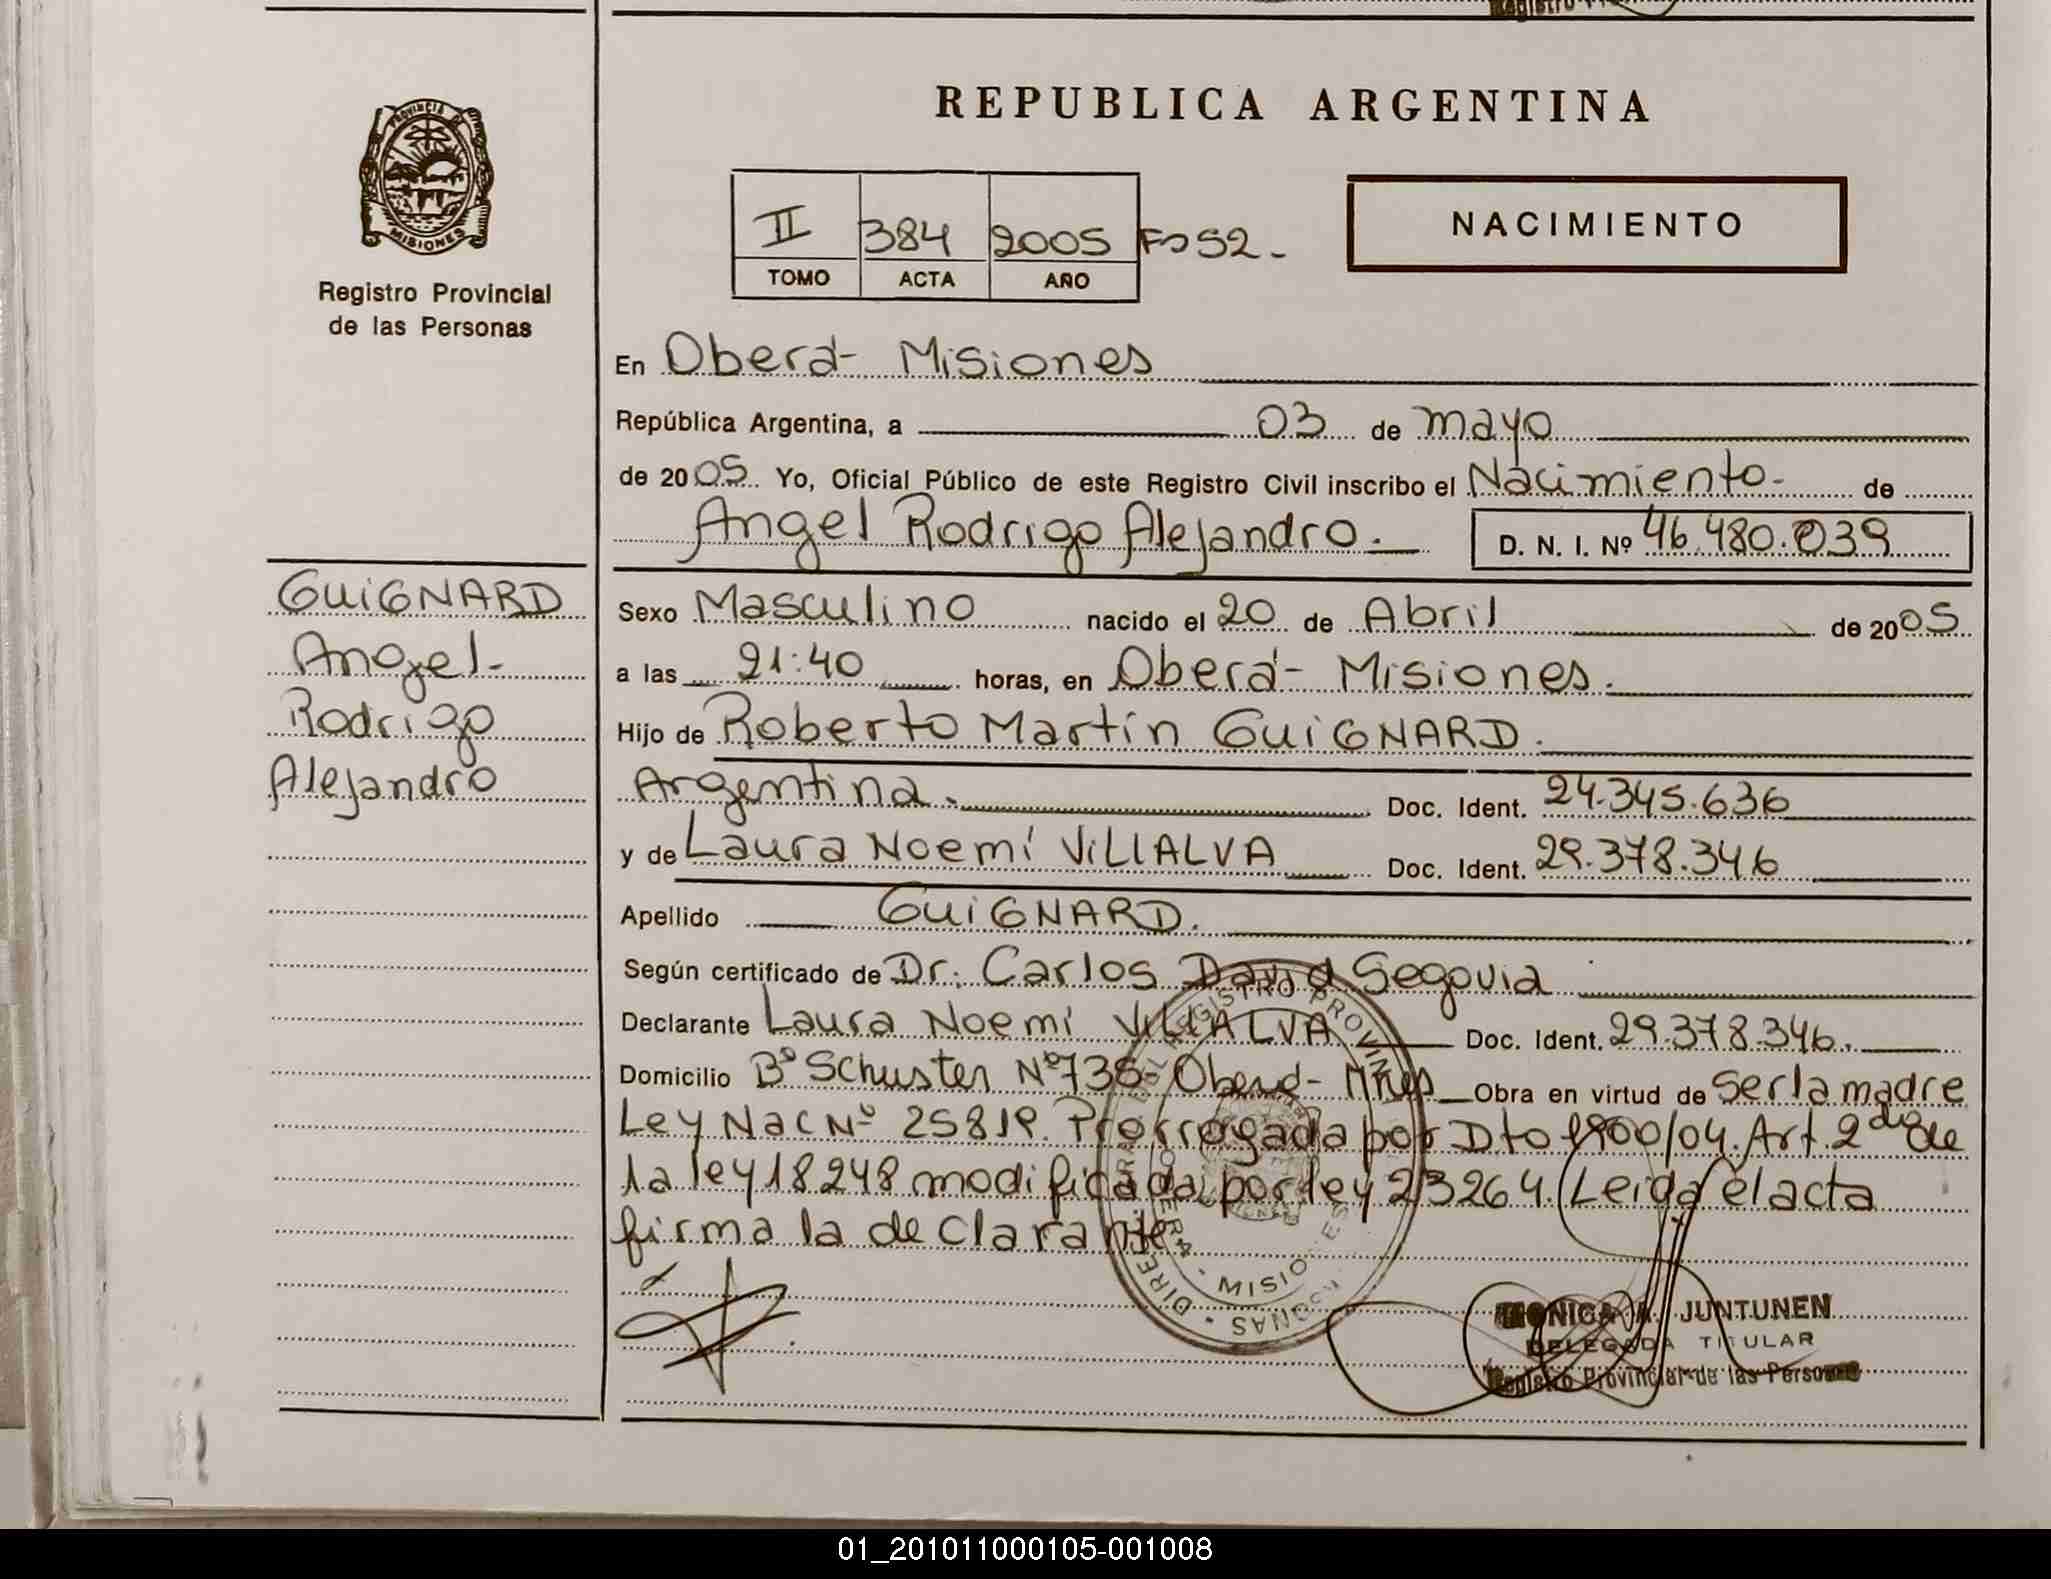 REPUBLICA ARGENTINA
PROVINCIA DE
MISIONES
Registro Provincial
de las Personas
II 384 2005 Fº 52.-
TOMO ACTA AÑO
NACIMIENTO
En Oberá - Misiones
República Argentina, a 03 de mayo
de 2005. Yo, Oficial Público de este Registro Civil inscribo el Nacimiento.- de
Angel Rodrigo Alejandro.- D. N. I. Nº 46.480.039
GUiGNARD
Angel.-
Rodrigo
Alejandro
Sexo Masculino nacido el 20 de Abril de 2005
a las 21:40 horas, en Oberá - Misiones.
Hijo de Roberto Martín GUiGNARD.
Argentina. Doc. Ident. 24.345.636
y de Laura Noemí ViLLALVA Doc. Ident. 29.378.346
Apellido GUiGNARD.
Según certificado de Dr. Carlos David Segovia
Declarante Laura Noemí ViLLALVA Doc. Ident. 29.378.346.
Domicilio Bº Schuster Nº 738 - Oberá - Mnes Obra en virtud de Ser la madre
Ley Nac Nº 25819. Prorrogada por Dto 1900/04. Art. 2do de
la ley 18248 modificada por ley 23264. Leida el acta
firma la declarante
MISIONES
MONICA A. JUNTUNEN
DELEGADA TITULAR
Registro Provincial de las Personas
01_201011000105-001008